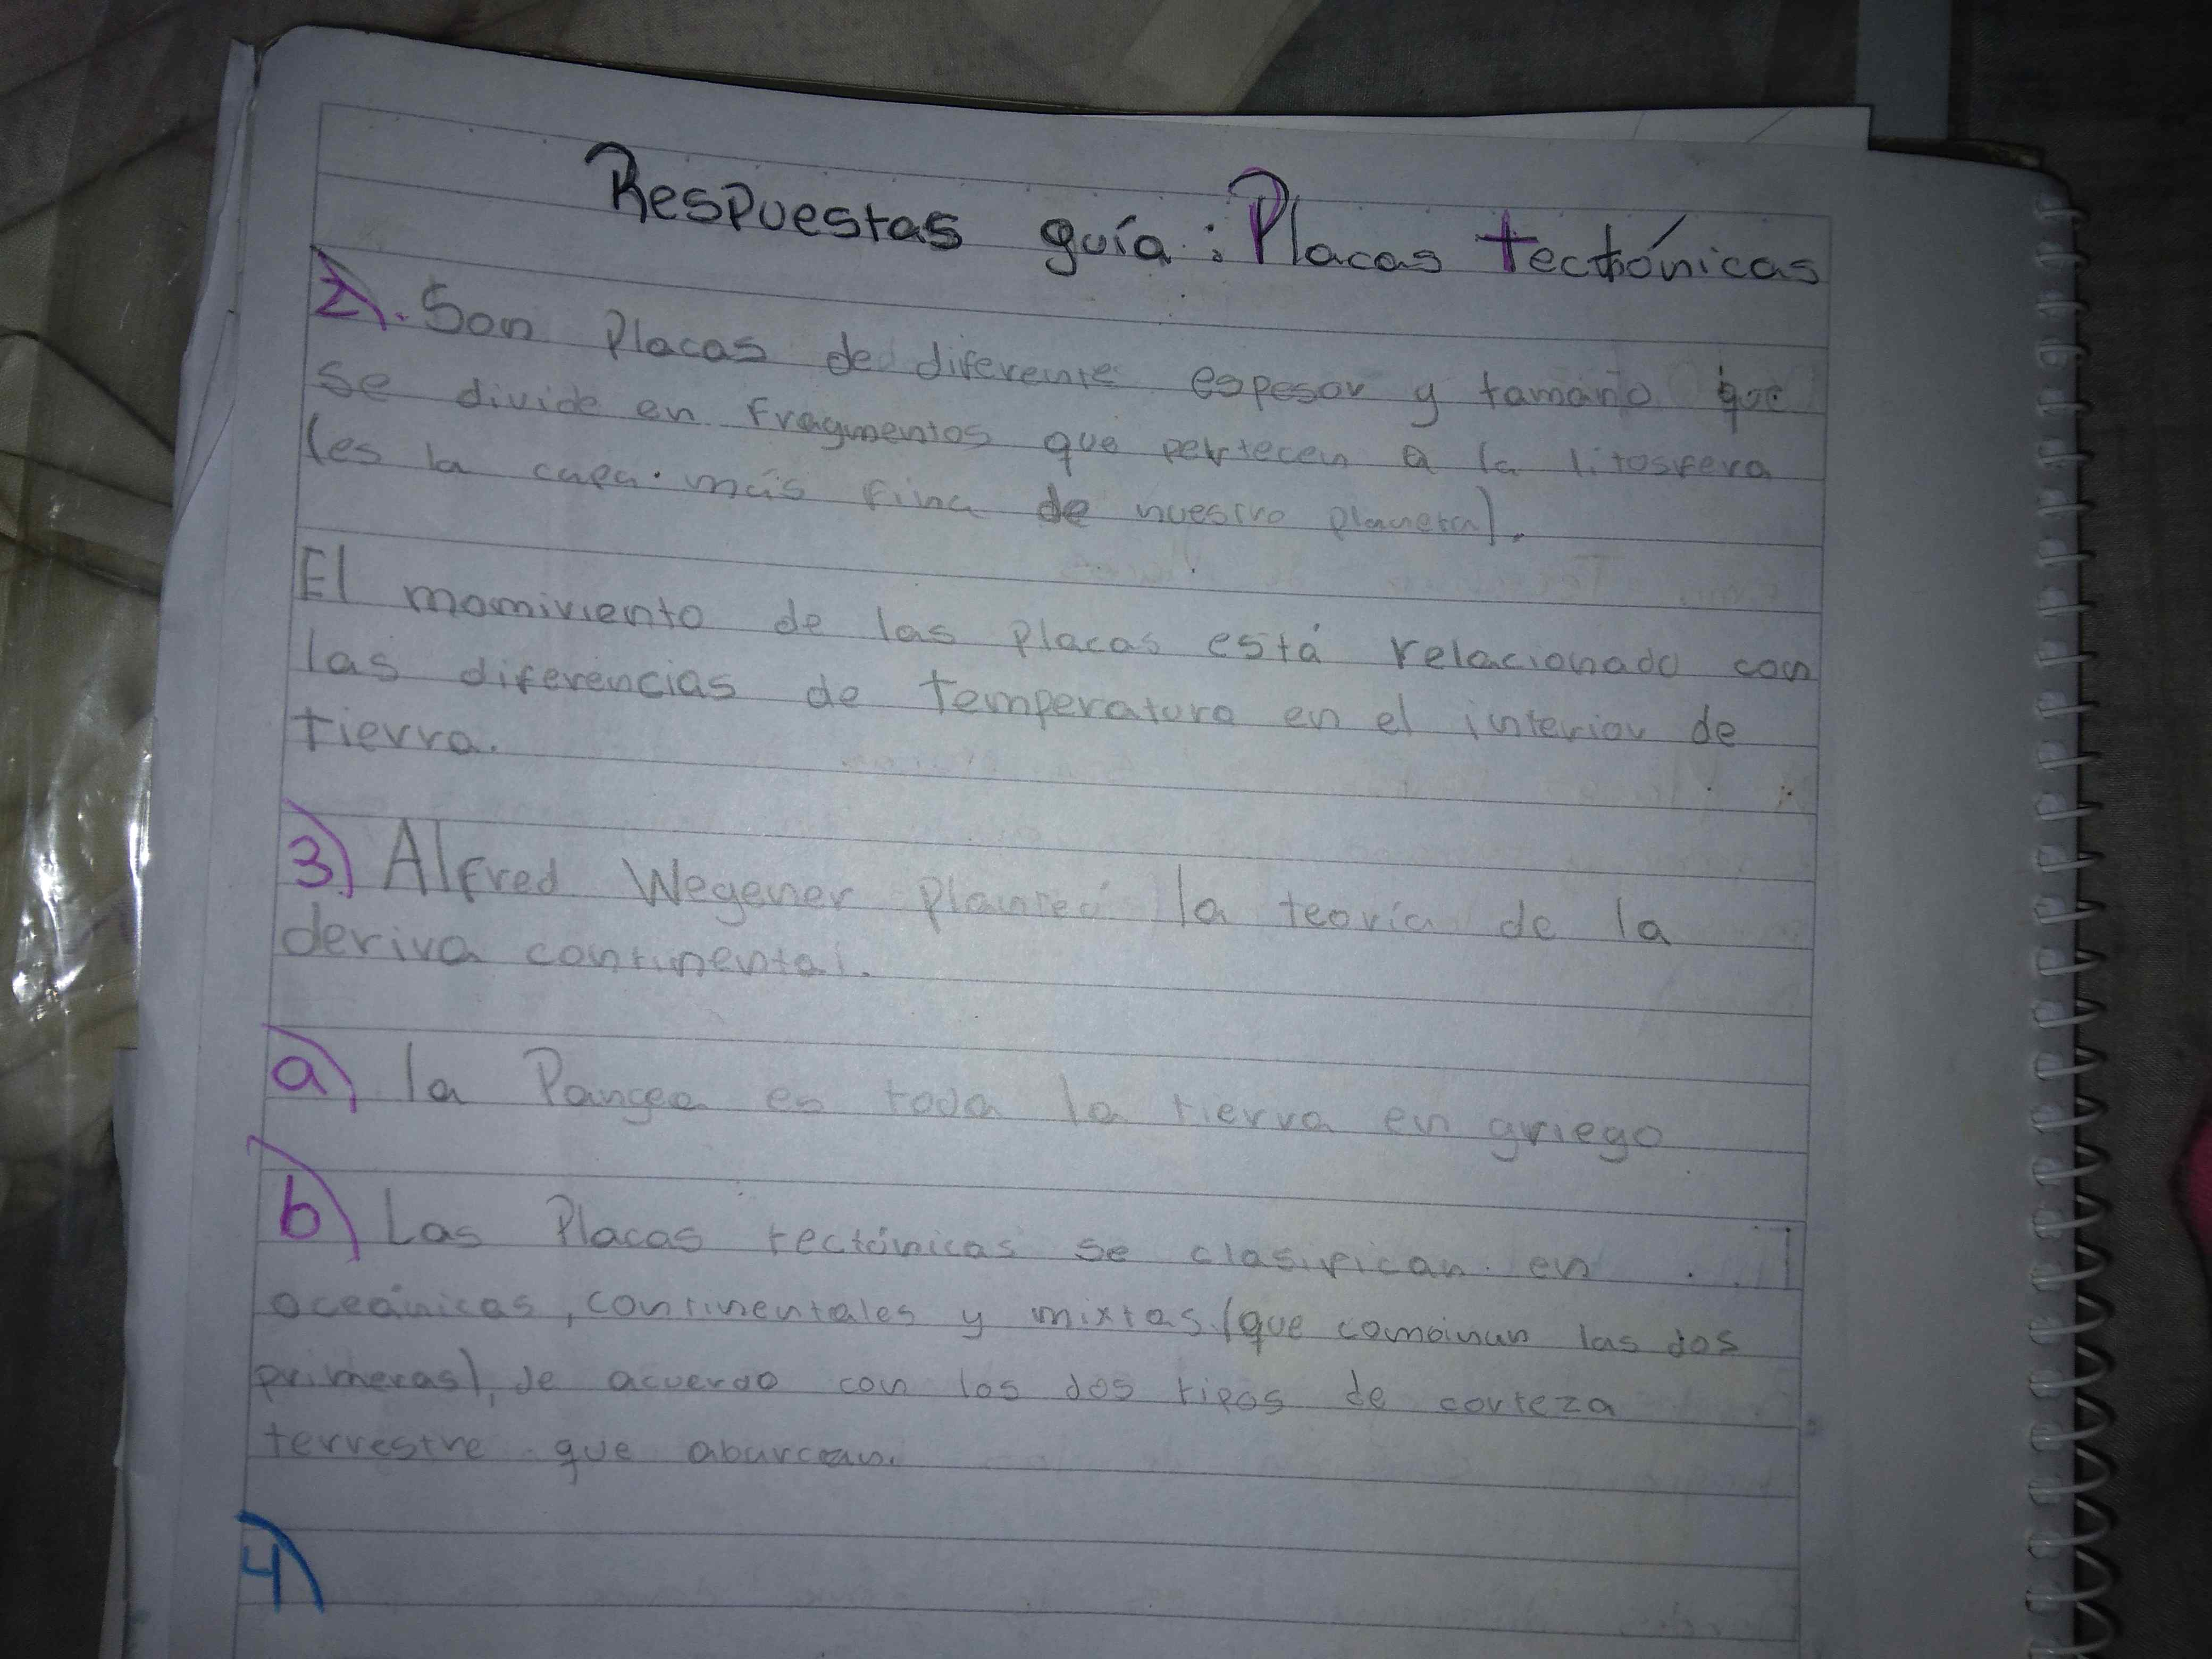 Respuestas guía: Placas tectónicas
2). Son Placas de diferente espesor y tamaño que
se divide en fragmentos que pertecen a la litosfera
(es la capa más fina de nuestro planeta).
El momiviento de las placas está relacionado con
las diferencias de temperatura en el interior de
tierra.
3) Alfred Wegener planteó la teoría de la
deriva continental.
a) la Pangea es toda la tierra en griego
b) Las Placas tectónicas se clasifican en
oceánicas, continentales y mixtas (que combinan las dos
primeras), de acuerdo con los dos tipos de corteza
terrestre que aburcan.
4)